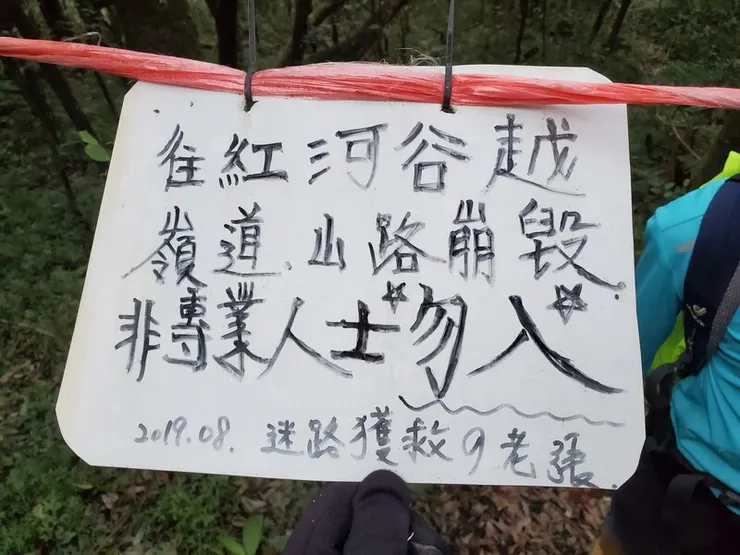 往紅河谷越
嶺道、山路崩毀.
非專業人士☆勿入☆
2019.08. 迷路獲救の老張.